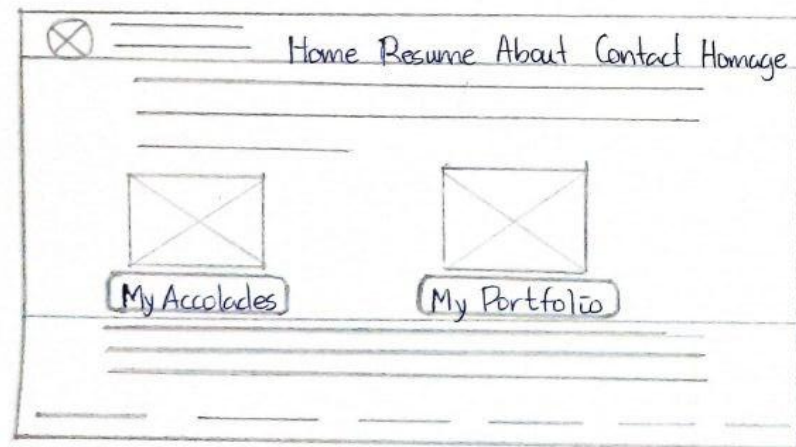 Home Resume About Contact Homage
My Accolades My Portfolio